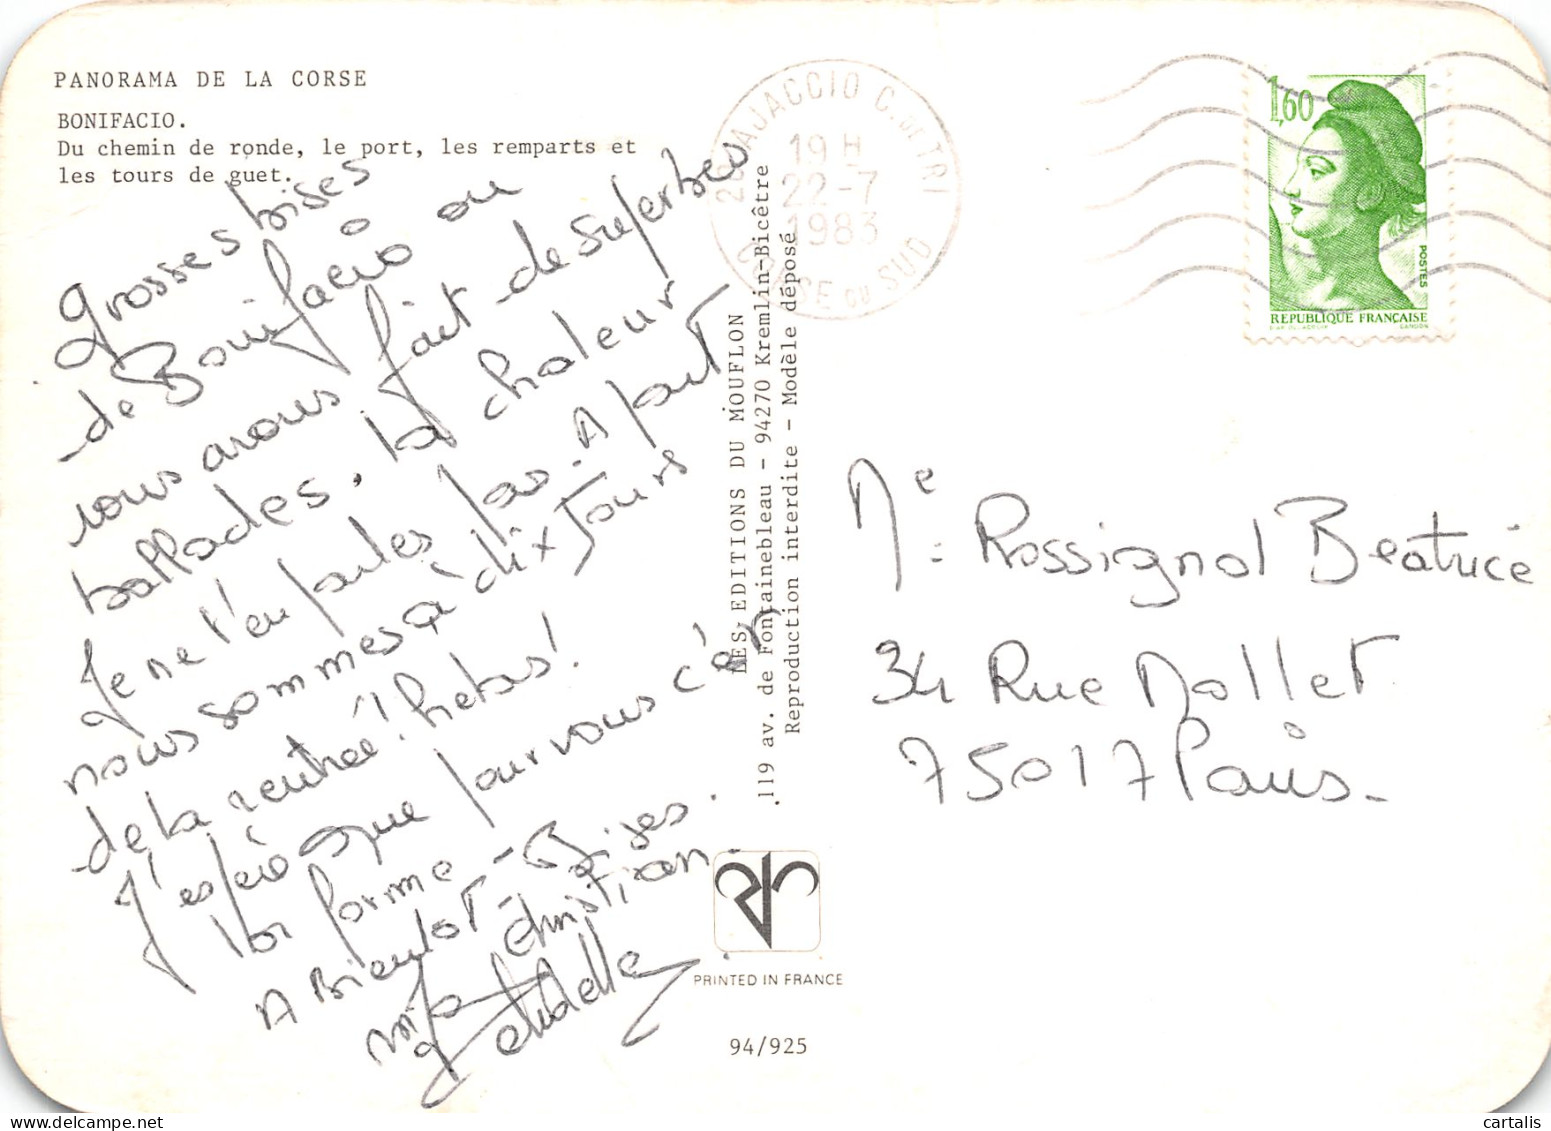 PANORAMA DE LA CORSE
BONIFACIO.
Du chemin de ronde, le port, les remparts et
les tours de guet.
grosses bises
de Bonifacio ou
nous avons fait de superbes
ballades. la chaleur
Je ne t'en parles pas. A part
nous sommes à dix Jours
de la rentrée! helas!
J'espère que pour vous c'en
la forme - Bises.
A Bientot Christian.
LES EDITIONS DU MOUFLON
119 av. de Fontainebleau - 94270 Kremlin-Bicêtre
Reproduction interdite - Modèle déposé
PRINTED IN FRANCE
94/925
20 AJACCIO C. DE TRI
19 H
22-7
1983
CORSE DU SUD
1,60
POSTES
REPUBLIQUE FRANÇAISE
D'AP. DELACROIX GANDON
Me: Rossignol Beatrice
34 Rue Nollet
75017 Paris.
cartalis